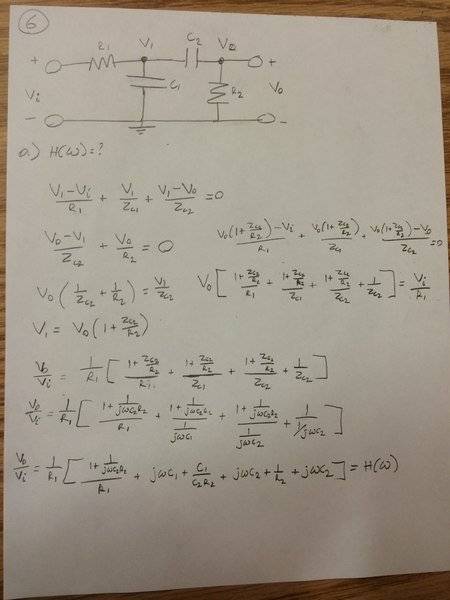 6
R1 V1 C2 V2
+ +
Vi C1 R2 Vo
- -
a.) H(ω)=?
(V1-Vi)/R1 + V1/Zc1 + (V1-Vo)/Zc2 = 0
(Vo-V1)/Zc2 + Vo/R2 = 0
(Vo(1+Zc2/R2)-Vi)/R1 + Vo(1+Zc2/R2)/Zc1 + (Vo(1+Zc2/R2)-Vo)/Zc2 = 0
Vo(1/Zc2 + 1/R2) = V1/Zc2
Vo[(1+Zc2/R2)/R1 + (1+Zc2/R2)/Zc1 + (1+Zc2/R2)/Zc2 + 1/Zc2] = Vi/R1
V1 = Vo(1+Zc2/R2)
Vo/Vi = 1/R1[(1+Zc2/R2)/R1 + (1+Zc2/R2)/Zc1 + (1+Zc2/R2)/Zc2 + 1/Zc2]
Vo/Vi = 1/R1[(1+1/(jωC2R2))/R1 + (1+1/(jωC2R2))/(1/jωC1) + (1+1/(jωC2R2))/(1/jωC2) + 1/(1/jωC2)]
Vo/Vi = 1/R1[(1+1/(jωC2R2))/R1 + jωC1 + C1/(C2R2) + jωC2 + 1/R2 + jωC2] = H(ω)